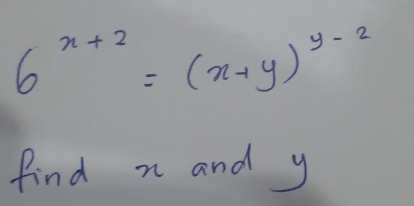 6^{x+2} = (x+y)^{y-2}
find x and y